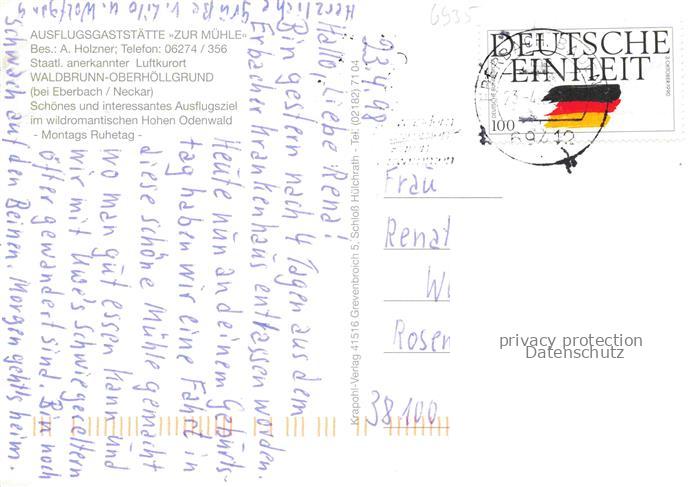 AUSFLUGSGASTSTÄTTE »ZUR MÜHLE«
Bes.: A. Holzner; Telefon: 06274 / 356
Staatl. anerkannter Luftkurort
WALDBRUNN-OBERHÖLLGRUND
(bei Eberbach / Neckar)
Schönes und interessantes Ausflugsziel
im wildromantischen Hohen Odenwald
- Montags Ruhetag -
23.4.98
Hallo, Liebe Rena!
Bin gestern nach 4 Tagen aus dem
Erbacher Krankenhaus entlassen worden.
Heute nun an deinem Geburts-
tag haben wir eine Fahrt in
diese schöne Mühle gemacht
wo man gut essen kann und
wir mit Uwe's Schwiegereltern
öfter gewandert sind. Bin noch
schwach auf den Beinen. Morgen gehts heim.
Herzliche Grüße v. Lilo u. Wolfgang
Krapohl-Verlag 41516 Grevenbroich 5, Schloß Hülchrath - Tel. (02182) 7104
6935
DEUTSCHE
EINHEIT
3. OKTOBER 1990
DEUTSCHE BUNDESPOST
100
69412
Frau
Renat
Wi
Rosen
38100
privacy protection
Datenschutz